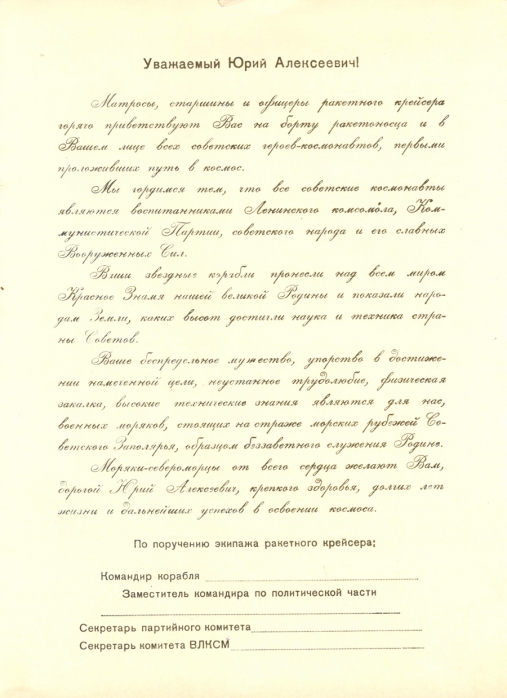 Уважаемый Юрий Алексеевич!
Матросы, старшины и офицеры ракетного крейсера
горячо приветствуют Вас на борту ракетоносца и в
Вашем лице всех советских героев-космонавтов, первыми
проложивших путь в космос.
Мы гордимся тем, что все советские космонавты
являются воспитанниками Ленинского комсомола, Ком-
мунистической Партии, советского народа и его славных
Вооруженных Сил.
Ваши звездные корабли пронесли над всем миром
Красное Знамя нашей великой Родины и показали наро-
дам Земли, каких высот достигли наука и техника стра-
ны Советов.
Ваше беспредельное мужество, упорство в достиже-
нии намеченной цели, неустанное трудолюбие, физическая
закалка, высокие технические знания являются для нас,
военных моряков, стоящих на страже морских рубежей Со-
ветского Заполярья, образцом беззаветного служения Родине.
Моряки-североморцы от всего сердца желают Вам,
дорогой Юрий Алексеевич, крепкого здоровья, долгих лет
жизни и дальнейших успехов в освоении космоса.
По поручению экипажа ракетного крейсера:
Командир корабля
Заместитель командира по политической части
Секретарь партийного комитета
Секретарь комитета ВЛКСМ